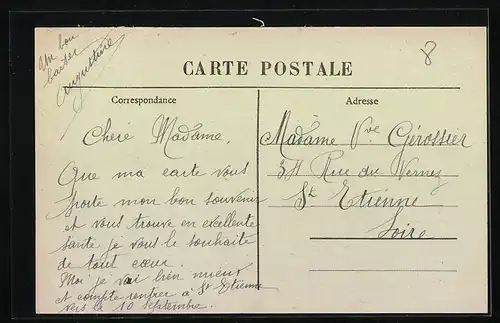 Un bon
baiser
Augustine
8
CARTE POSTALE
Correspondance
Adresse
Chère Madame,
Que ma carte vous
porte mon bon souvenir
et vous trouve en excellente
santé je vous le souhaite
de tout cœur.
Moi je vai bien mieux
et compte rentrer à St Etienne
vers le 10 septembre.
Madame Vve
34 Rue du Vernay
St Etienne
Loire